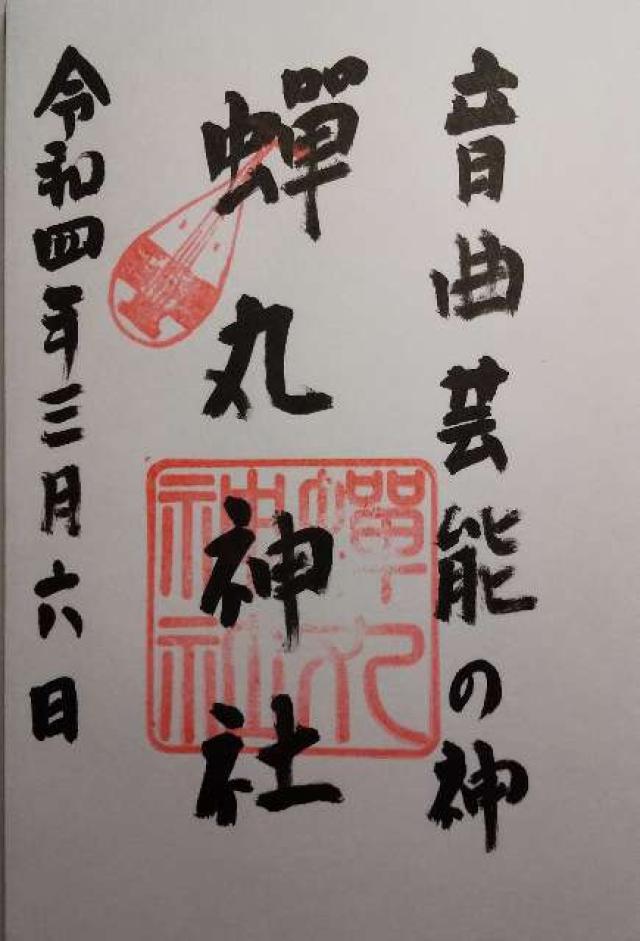 音曲芸能の神
蟬丸神社
蟬丸神社
令和四年三月六日